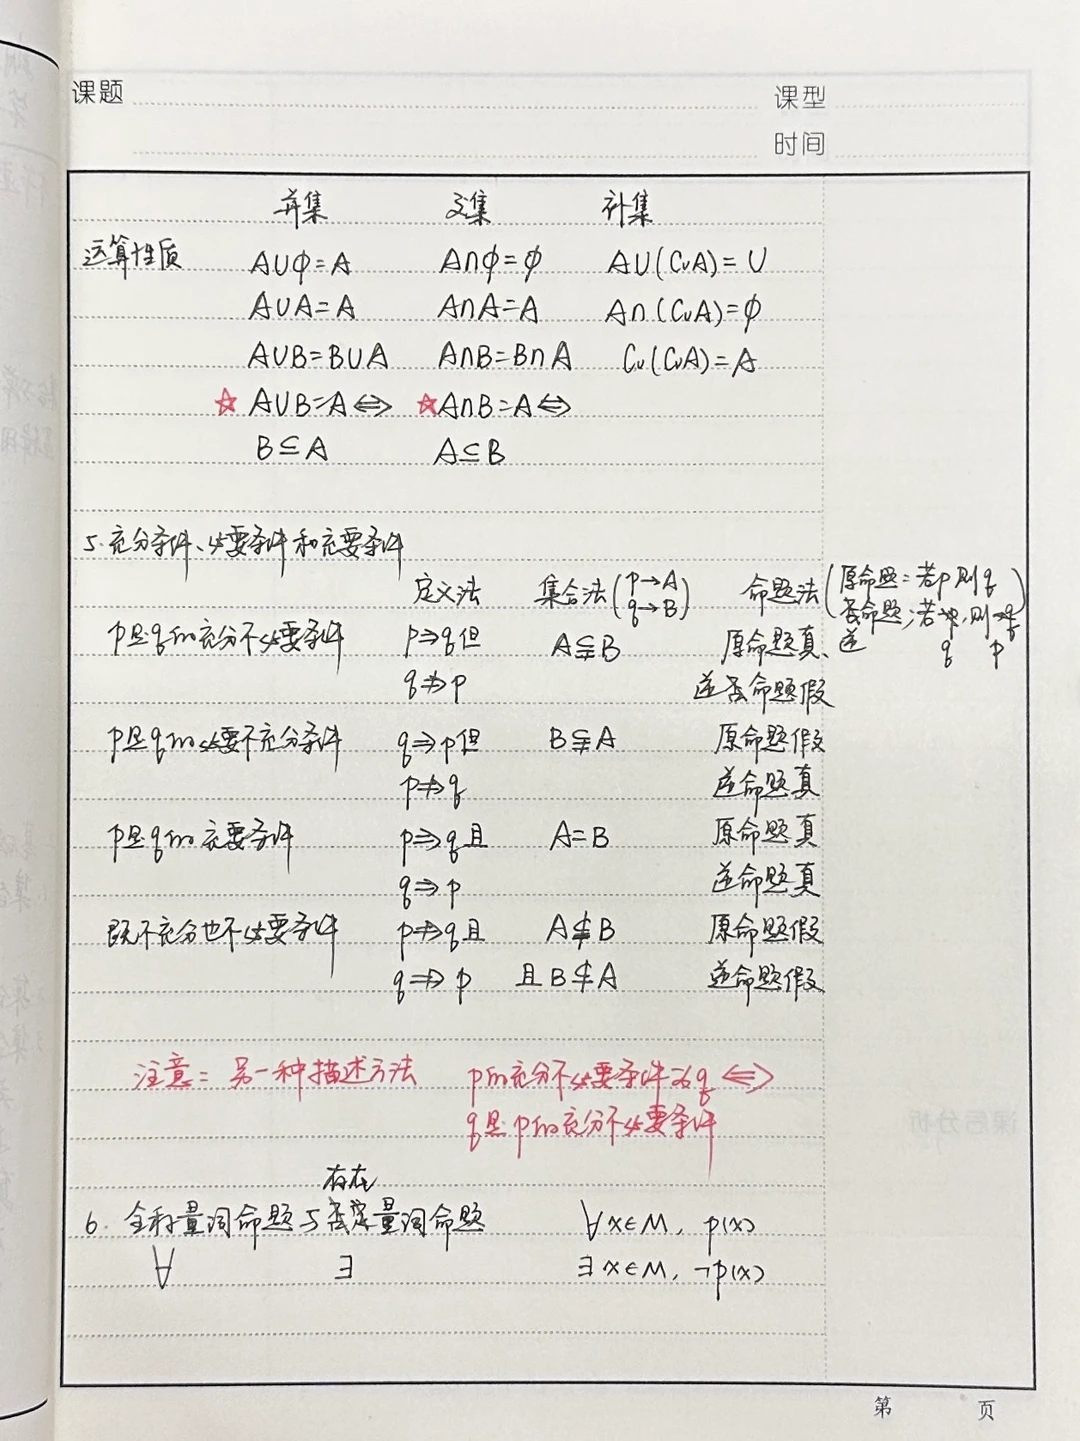 课题 课型
时间
并集 交集 补集
运算性质 A∪φ=A A∩φ=φ A∪(CuA)=U
A∪A=A A∩A=A A∩(CuA)=φ
A∪B=B∪A A∩B=B∩A Cu(CuA)=A
☆A∪B=A⇔ ☆A∩B=A⇔
B⊆A A⊆B
5.充分条件、必要条件和充要条件
定义法 集合法(p→A q→B) 命题法(原命题:若p则q
否命题:若¬p,则¬q)
p是q的充分不必要条件 p⇒q但 A⫋B 原命题真、 逆 q p
q⇏p 逆否命题假
p是q的必要不充分条件 q⇒p但 B⫋A 原命题假
p⇏q 逆命题真
p是q的充要条件 p⇒q且 A=B 原命题真
q⇒p 逆命题真
既不充分也不必要条件 p⇏q且 A⊄B 原命题假
q⇏p 且B⊄A 逆命题假
注意:另一种描述方法 p的充分不必要条件为q⇔
q是p的充分不必要条件
存在
6.全称量词命题与否定量词命题 ∀x∈M, p(x)
∀ ∃ ∃x∈M, ¬p(x)
第 页